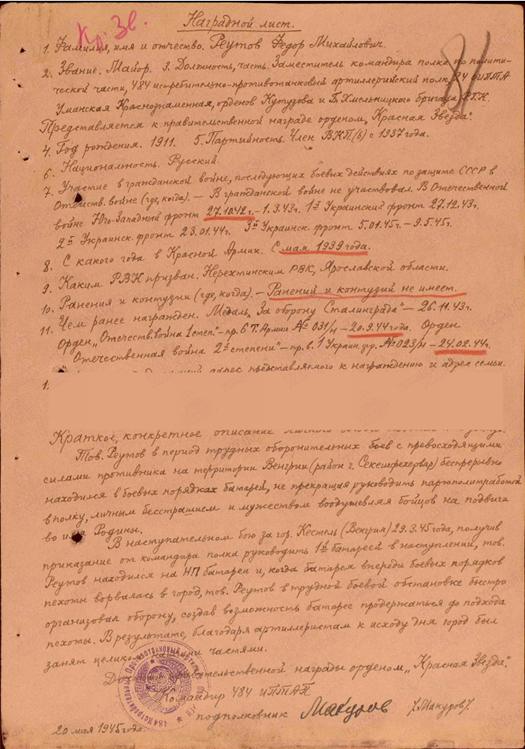 Кр. Зв.
Наградной лист.
81
1. Фамилия, имя и отчество. Реутов Федор Михайлович.
2. Звание. Майор. 3. Должность, часть. Заместитель командира полка по полити-
ческой части, 484 истребительно-противотанковый артиллерийский полк, 24 ОИПТА
Уманская Краснознаменная, орденов Кутузова и Б. Хмельницкого бригада РГК.
Представляется к правительственной награде орденом „Красная Звезда".
4. Год рождения. 1911. 5. Партийность. Член ВКП(б) с 1937 года.
6. Национальность. Русский.
7. Участие в гражданской войне, последующих боевых действиях по защите СССР в
Отечеств. войне (где, когда). – В гражданской войне не участвовал. В Отечественной
войне Юго-Западный фронт 27.10.42 г. – 1.3.43. 1й Украинский фронт 27.12.43.
2й Украинск. фронт 23.01.44. 3й Украинск фронт 5.01.45 – 9.5.45.
8. С какого года в Красной Армии. С мая 1939 года.
9. Каким РВК призван. Нерехтинским РВК, Ярославской области.
10. Ранения и контузии (где, когда). – Ранений и контузий не имеет.
11. Чем ранее награжден. Медаль „За оборону Сталинграда" – 26.11.43.
Орден „Отечеств. война 1 степ." – пр. 6 Т. Армии № 031/н – 20.9.44 года. Орден
„Отечественная война 2й степени" – пр. в. 1 Украин. фр. № 023/н – 24.02.44г.
адрес представляемого к награждению и адрес семьи.
1.
Краткое, конкретное описание личного
Тов. Реутов в период трудных оборонительных боев с превосходящими
силами противника на территории Венгрии (район г. Секешфехервар) беспрерывно
находился в боевых порядках батарей, не прекращая руководить партполитработой
в полку, личным бесстрашием и мужеством воодушевляя бойцов на подвиги
во имя Родины.
В наступательном бою за гор. Кестем (Венгрия) 29.3.45 года, получив
приказание от командира полка руководить 1й батареей в наступлении, тов.
Реутов находился на НП батареи и, когда батарея впереди боевых порядков
пехоты ворвалась в город, тов. Реутов в трудной боевой обстановке быстро
организовал оборону, создав возможность батарее продержаться до подхода
пехоты. В результате, благодаря артиллеристам к исходу дня город был
занят нашими частями.
правительственной награды орденом „Красная Звезда".
Командир 484 ИПТАП
подполковник Макуров /Макуров/.
20 мая 1945 года.